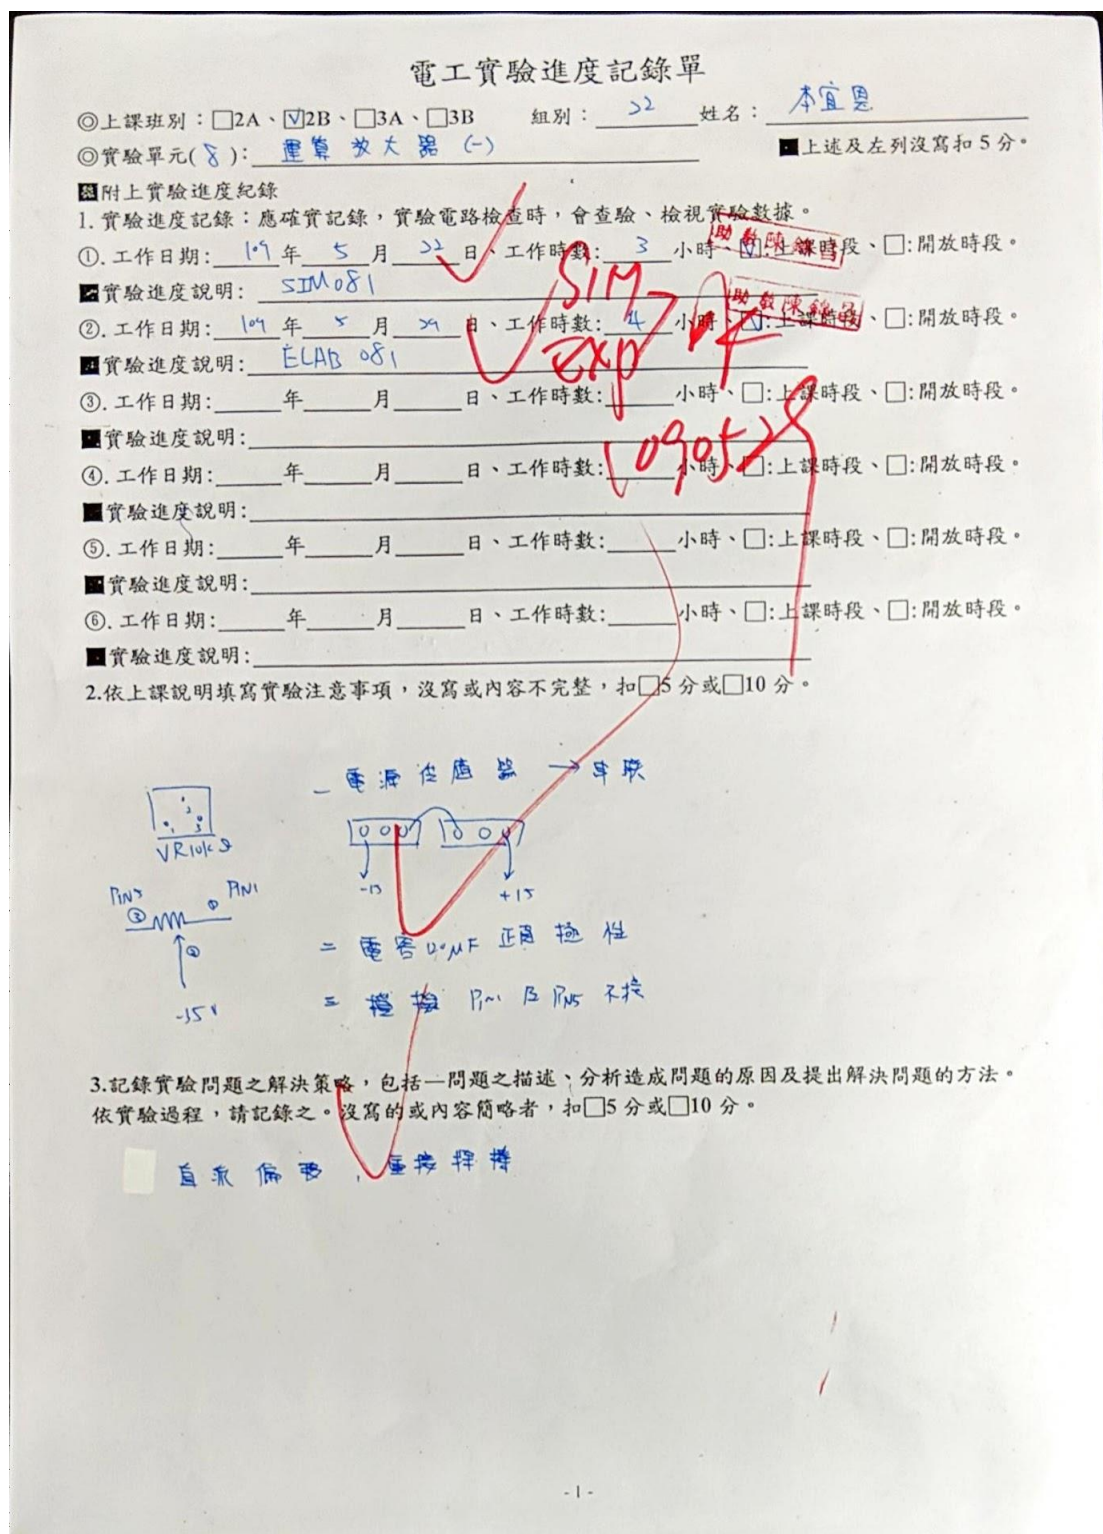 電工實驗進度記錄單
◎上課班別:□2A、☑2B、□3A、□3B 組別: 22 姓名: 本宜恩
◎實驗單元( 8 ): 運算放大器 (一) ■上述及左列沒寫扣 5 分。
附上實驗進度紀錄
1. 實驗進度記錄:應確實記錄,實驗電路檢查時,會查驗、檢視實驗數據。
①. 工作日期: 109 年 5 月 22 日、工作時數: 3 小時、☑:上課時段、□:開放時段。
■實驗進度說明: SIM081
②. 工作日期: 109 年 5 月 29 日、工作時數: 4 小時、☑:上課時段、□:開放時段。
■實驗進度說明: ELAB 081
SIM
Exp
OK
1090529
助教陳錦
助教陳錦
③. 工作日期: 年 月 日、工作時數: 小時、□:上課時段、□:開放時段。
■實驗進度說明:
④. 工作日期: 年 月 日、工作時數: 小時、□:上課時段、□:開放時段。
■實驗進度說明:
⑤. 工作日期: 年 月 日、工作時數: 小時、□:上課時段、□:開放時段。
■實驗進度說明:
⑥. 工作日期: 年 月 日、工作時數: 小時、□:上課時段、□:開放時段。
■實驗進度說明:
2.依上課說明填寫實驗注意事項,沒寫或內容不完整,扣□5 分或□10 分。
一 電源 → 串聯
1 2 3
VR10kΩ
-15 +15
PIN5 PIN1
③ ①
②
-15V
二 電容 μF 正負極性
三 Pin1 及 PIN5 不接
3.記錄實驗問題之解決策略,包括—問題之描述、分析造成問題的原因及提出解決問題的方法。
依實驗過程,請記錄之。沒寫的或內容簡略者,扣□5 分或□10 分。
直流偏 , 重接
- 1 -